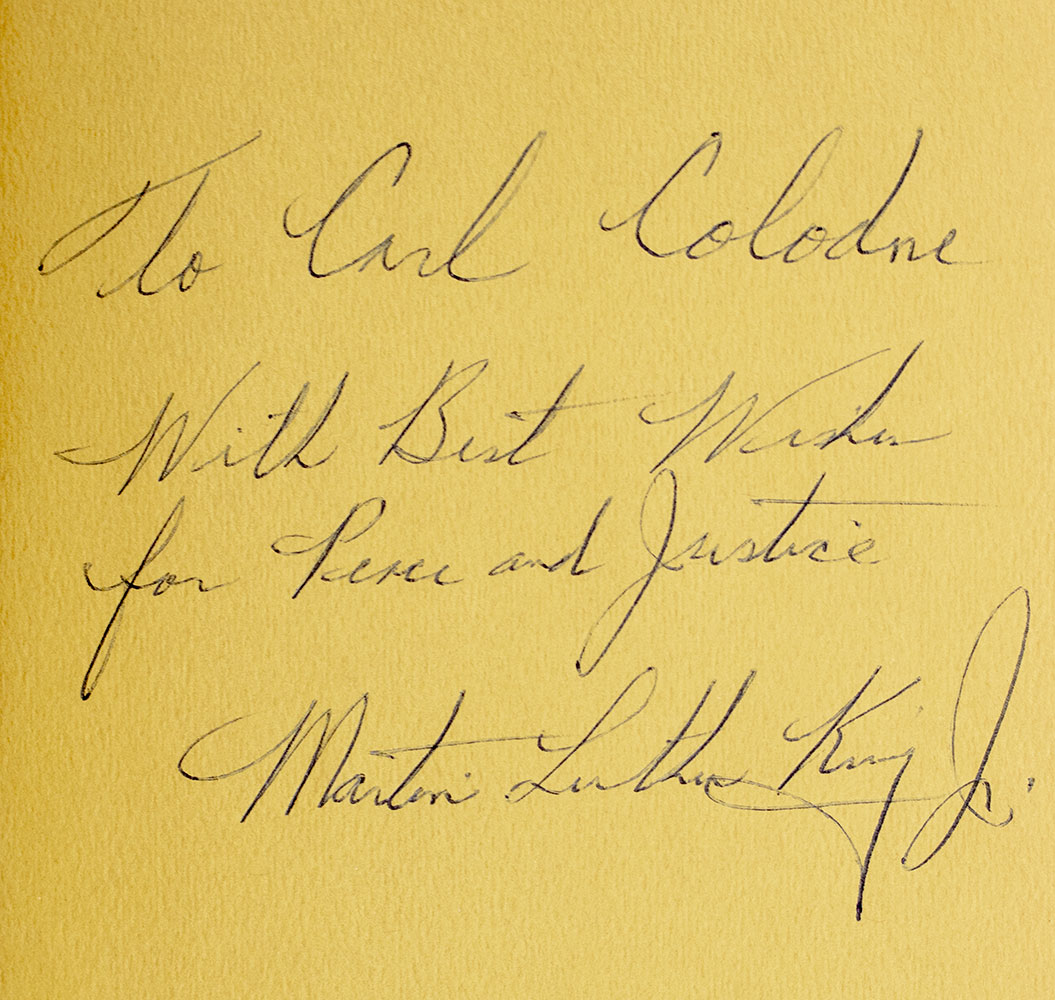 To Carl Colodne
With Best Wishes
for Peace and Justice
Martin Luther King Jr.